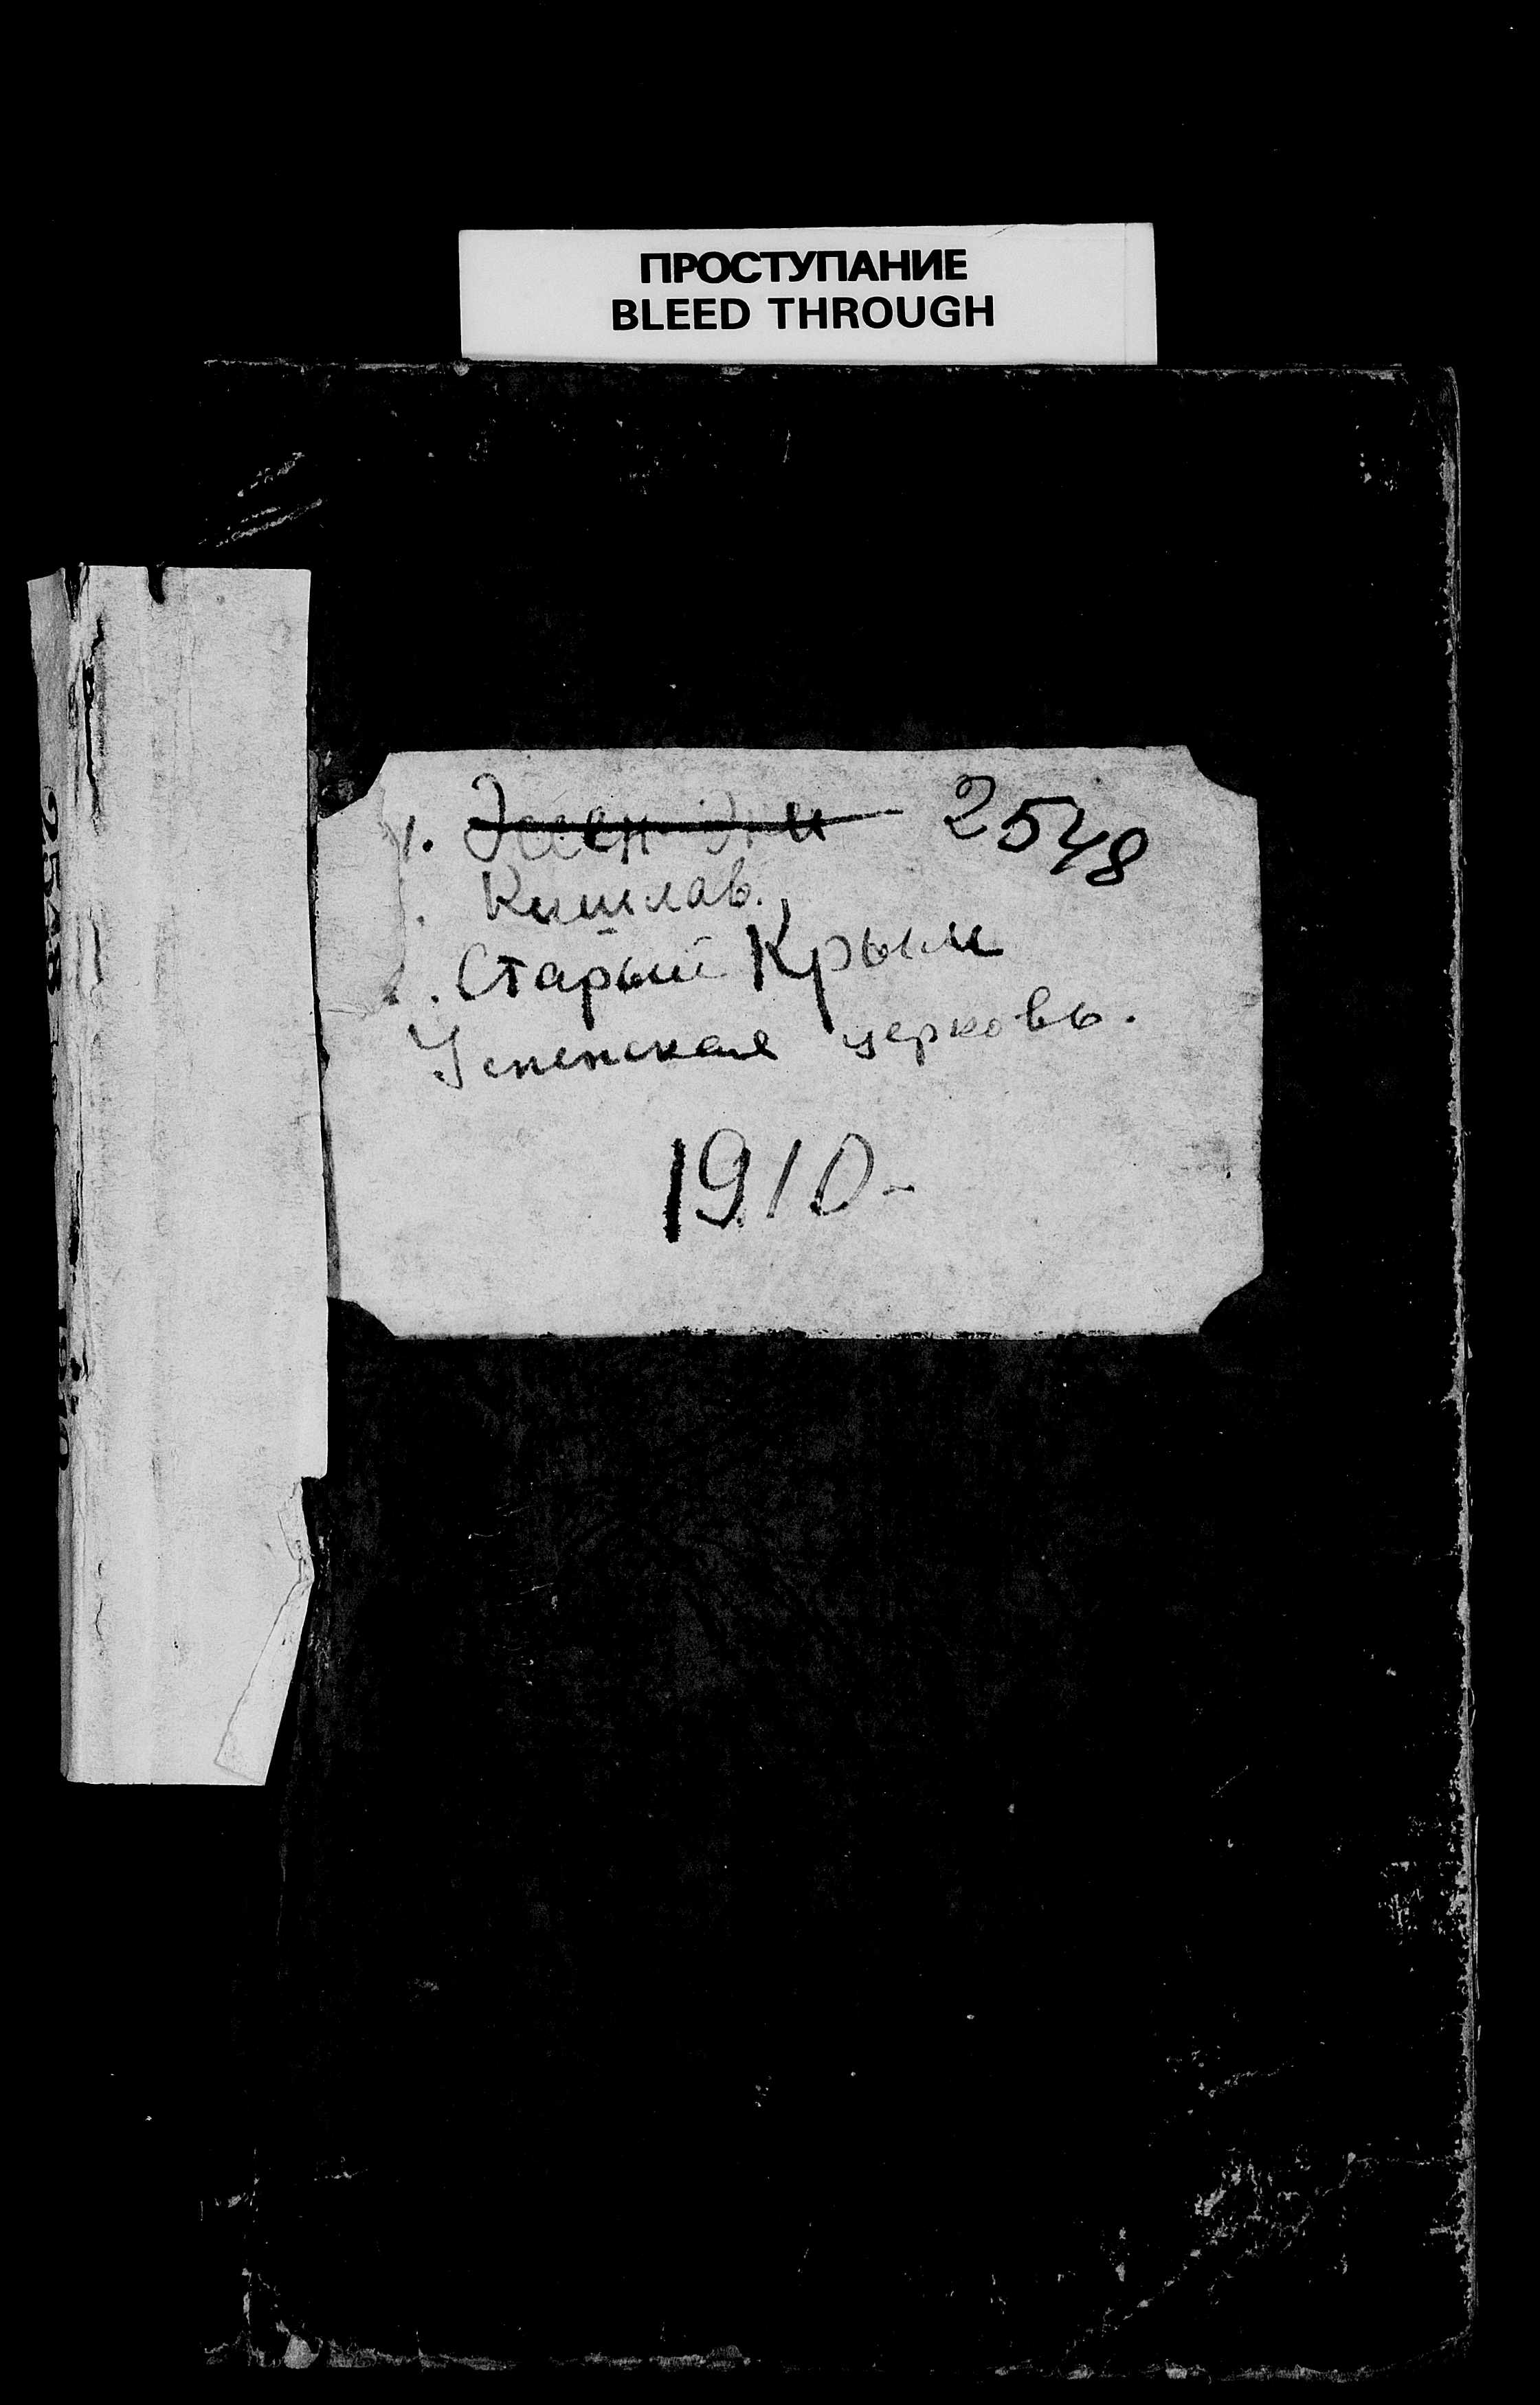 ПРОСТУПАНИЕ
BLEED THROUGH
2548
Кишлав.
Старый Крым
Успенская церковь.
1910-
2548